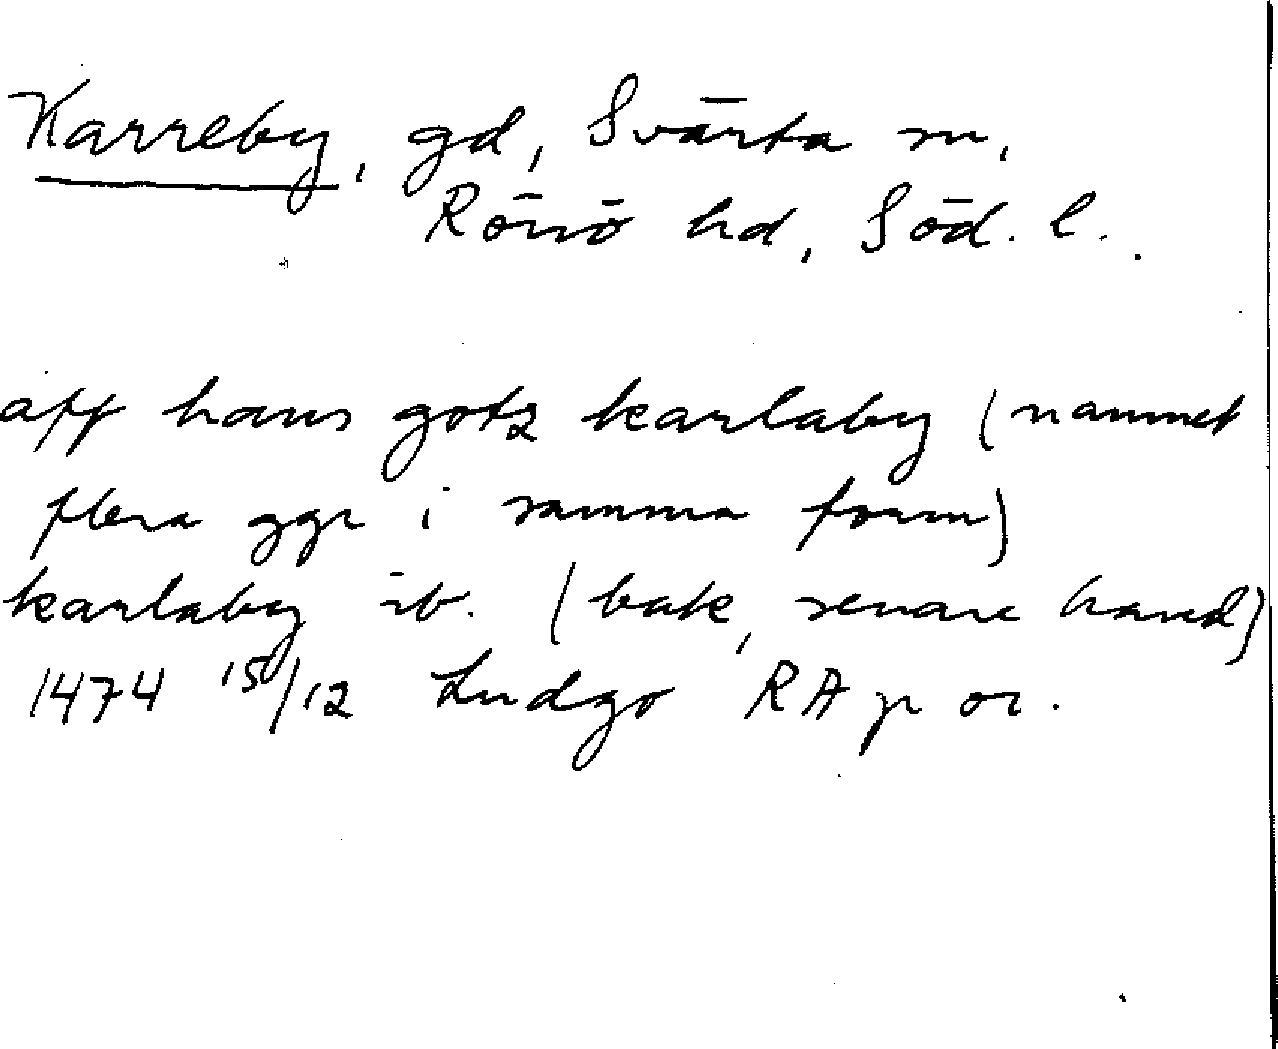 Karreby, gd, Svärta sn,
Rönö hd, Söd. l.
aff hans gotz karlaby (namnet
flera ggr i samma form)
karlaby ib. (bak, senare hand)
1474 15/12 Ludgo RA p or.